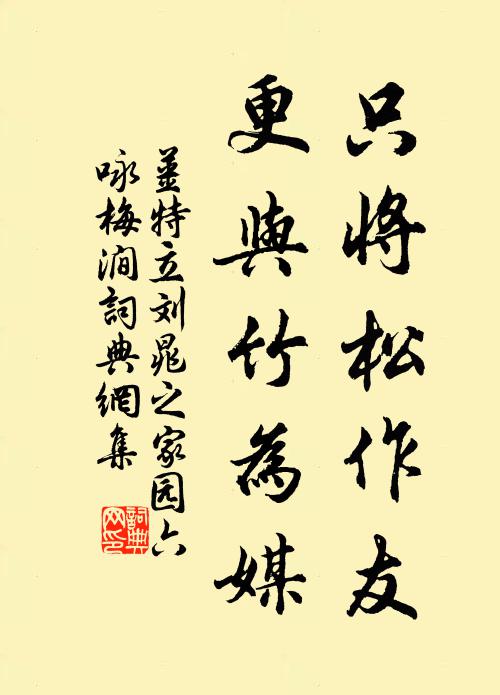 只将松作友
更與竹為媒
薑特立刘晁之家园六
咏梅涧詞典網集
詞典网印